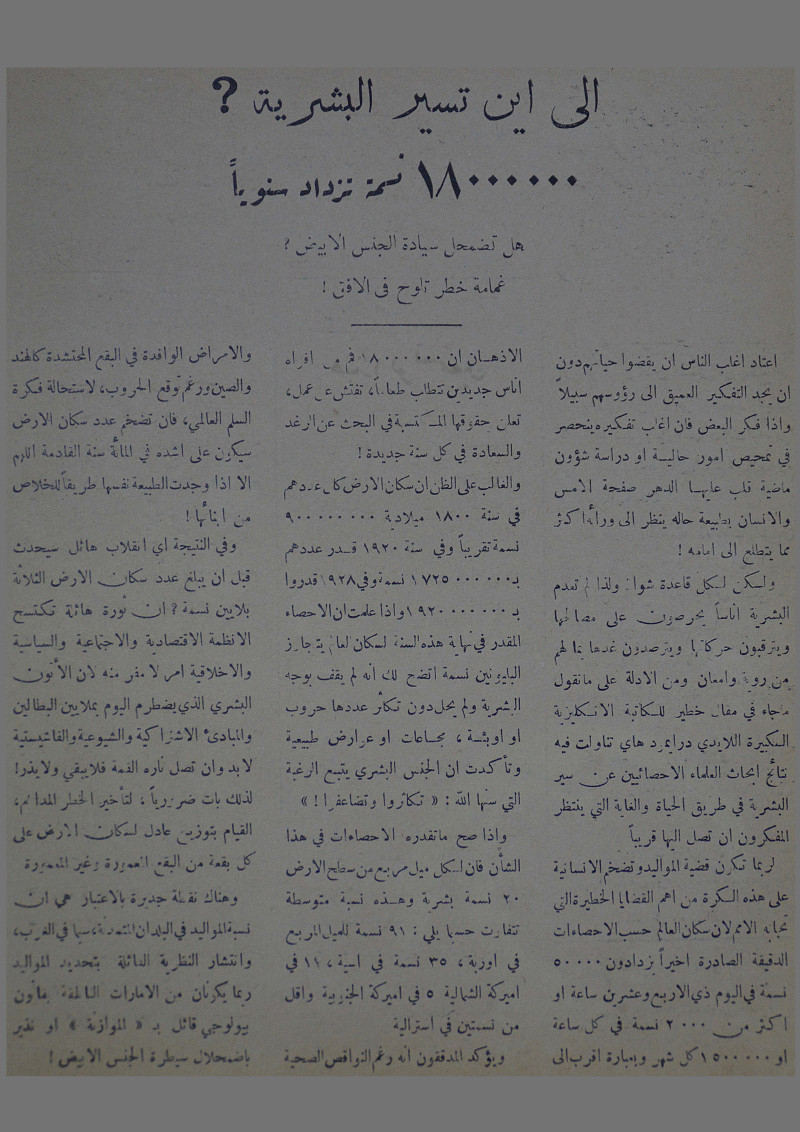 الى اين تسير البشرية ?
١٨٠٠٠٠٠٠ نسمة تزداد سنوياً
هل تضمحل سيادة الجنس الابيض ?
غمامة خطر تلوح في الافق !
اعتاد اغلب الناس ان يقضوا حياتهم دون
ان يجد التفكير العميق الى رؤوسهم سبيلاً
واذا فكر البعض فان اغلب تفكيره ينحصر
في تمحيص امور حالية او دراسة شؤون
ماضية قلب عليها الدهر صفحة الامس
والانسان بطبيعة حاله ينظر الى ورائه اكثر
مما يتطلع الى امامه !
ولكن لكل قاعدة شواذ ولذا لم تعدم
البشرية اناساً يحرصون على مصالحها
ويترقبون حركاتها ويترصدون غدها بما لهم
من روية وامعان ومن الادلة على ما نقول
ماجاء في مقال خطير للكاتبة الانكليزية
الكبيرة اللايدي درايمرد هاي تناولت فيه
نتائج ابحاث العلماء الاحصائيين عن سير
البشرية في طريق الحياة والغاية التي ينتظر
المفكرون ان تصل اليها قريباً
لربما تكون قضية المواليد وتضخم الانسانية
على هذه الكرة من اهم القضايا الخطيرة التي
تجابه الامم لان سكان العالم حسب الاحصاءات
الدقيقة الصادرة اخيراً يزدادون ٥٠٠٠٠
نسمة في اليوم ذي الاربع وعشرين ساعة او
اكثر من ٢٠٠٠ نسمة في كل ساعة
او ١٥٠٠٠٠٠ كل شهر وبعبارة اقرب الى
الاذهان ان ١٨٠٠٠٠٠٠ فم من افراه
اناس جديدين تتطلب طعاماً، تفتش عن عمل،
تعلن حقوقها المكتسبة في البحث عن الرغد
والسعادة في كل سنة جديدة !
والغالب على الظن ان سكان الارض كان عددهم
في سنة ١٨٠٠ ميلادية ٩٠٠٠٠٠٠٠٠
نسمة تقريباً وفي سنة ١٩٢٠ قدر عددهم
بـ ١٧٢٥٠٠٠٠٠٠ نسمة وفي ١٩٢٨ قدروا
بـ ١٩٢٠٠٠٠٠٠٠ واذا علمت ان الاحصاء
المقدر في نهاية هذه السنة لسكان العالم يتجاوز
البليونين نسمة اتضح لك انه لم يقف بوجه
البشرية ولم يحل دون تكاثر عددها حروب
او اوبئة ، مجاعات او عوارض طبيعية
وتأكدت ان الجنس البشري يتبع الرغبة
التي سنها الله : « تكاثروا وتضاعفوا ! »
واذا صح ما تقدره الاحصاءات في هذا
الشأن فان لكل ميل مربع من سطح الارض
٢٠ نسمة بشرية وهذه نسبة متوسطة
تتفاوت حسبما يلي : ٩١ نسمة للميل المربع
في اوربة ، ٣٥ نسمة في اسية ، ١١ في
اميركة الشمالية ٥ في اميركة الجنوبية واقل
من نسمتين في استرالية
ويؤكد المدققون انه رغم النواقص الصحية
والامراض الوافدة في البقع المحتشدة كالهند
والصين ورغم توقع الحروب، لاستحالة فكرة
السلم العالمي، فان تضخم عدد سكان الارض
سيكون على اشده في المائة سنة القادمة اللهم
الا اذا وجدت الطبيعة نفسها طريقاً للخلاص
من ابنائها !
وفي النتيجة اي انقلاب هائل سيحدث
قبل ان يبلغ عدد سكان الارض الثلاثة
بلايين نسمة ? ان ثورة هائلة تكتسح
الانظمة الاقتصادية والاجتماعية والسياسية
والاخلاقية امر لا مفر منه لان الأتون
البشري الذي يضطرم اليوم بملايين البطالين
والمبادئ الاشتراكية والشيوعية والفاشيستية
لا بد وان تصل ناره القمة فلا يبقي ولا يذر !
لذلك بات ضرورياً ، لتأخير الخطر المداهم،
القيام بتوزيع عادل لسكان الارض على
كل بقعة من البقع المعمورة وغير المعمورة
وهناك نقطة جديرة بالاعتبار هي ان
نسبة المواليد في البلدان المتمدنة، سيما في الغرب،
وانتشار النظرية القائلة بتحديد المواليد
ربما يكونان من الامارات السالفة لقانون
بيولوجي قائل بـ « الموازنة » او نذير
باضمحلال سيطرة الجنس الابيض !